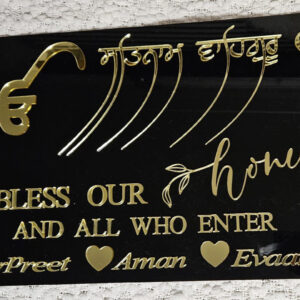 ੴ ਸਤਿਨਾਮ ਵਾਹਿਗੁਰੂ
BLESS OUR home
AND ALL WHO ENTER
rPreet Aman Evaa